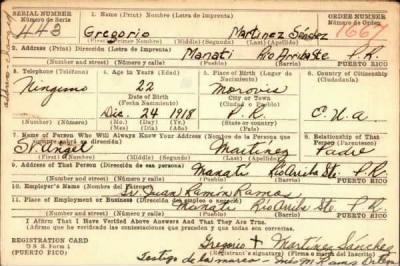 SERIAL NUMBER
Número de Serie
1. Name (Print) Nombre (Letra de Imprenta)
ORDER NUMBER
Número de Orden
443
Gregorio Martinez Sánchez
1667
First (Primer Nombre) Middle (Segundo) Last (Apellido)
2. Address (Print) Dirección (Letra de Imprenta)
Manati Rio Arriba Ste P.R.
PUERTO RICO
3. Telephone (Teléfono)
4. Age in Years (Edad)
5. Place of Birth (Lugar de Nacimiento)
6. Country of Citizenship (Ciudadanía)
Ninguno
22
Morovis
Date of Birth
(Fecha Nacimiento)
City or Town
(Ciudad o Pueblo)
Dic. 24 1918
P. R.
(Mo.) (Day) (Yr.)
(Mes) (Día) (Año)
7. Name of Person Who Will Always Know Your Address (Nombre de la Persona que
8. Relationship of That Person (Parentesco)
Sr. Angel Martinez
Padre
9. Address of That Person (Dirección de esa persona)
Manati Rio Arriba Ste. P.R.
PUERTO RICO
10. Employer's Name (Nombre del Patrono)
Sr. Juan Ramón Ramos
11. Place of Employment or Business (Dirección del empleo o negocio)
Manati Rio Arriba Ste P.R.
PUERTO RICO
I Affirm That I Have Verified Above Answers And That They Are True.
Afirmo que he verificado las contestaciones que preceden y que son ciertas.
REGISTRATION CARD
D S S. Form 1
(Puerto Rico)
Gregorio + Martinez Sánchez
Registrant's Signature (Firma o marca del Inscrito)
Testigo de la marca - Inés M. Ramos